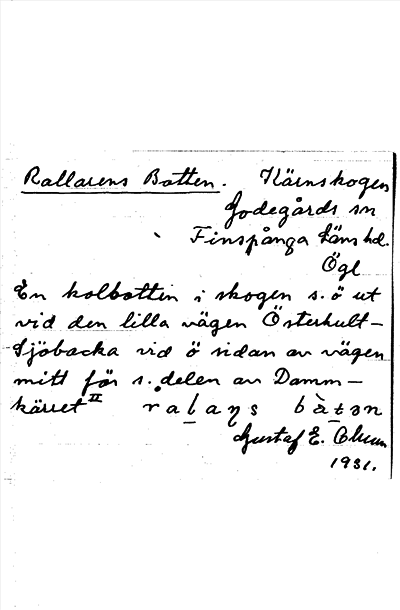 Rallarens Botten. Kärnskogen
Godegårds sn
Finspånga läns hd.
Ögl
En kolbotten i skogen s.ö ut
vid den lilla vägen Österhult-
Sjöbacka vid ö sidan av vägen
mitt för s. delen av Damm-
kärret II
Gustaf E.
1931.